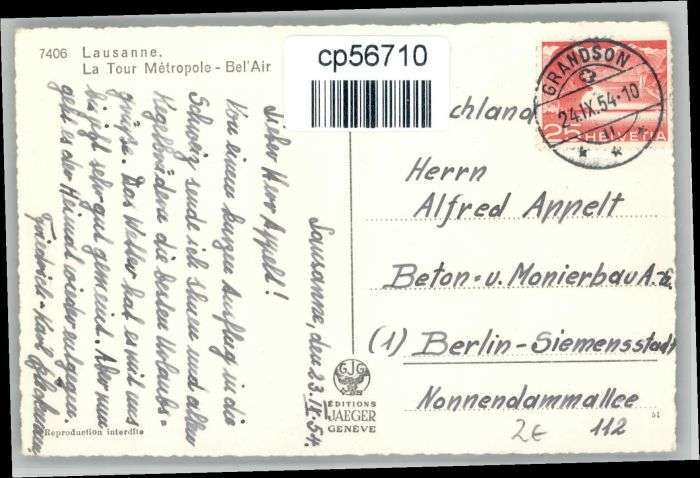 7406 Lausanne.
La Tour Métropole - Bel'Air
cp56710
GRANDSON
24.IX.54-10
25 HELVETIA
chland
Herrn
Alfred Appelt
Beton- u. Monierbau A.G.
(1) Berlin-Siemensstadt
Nonnendammallee
112
2€
51
Lausanne, den 23.IX.54.
Lieber Herr Appelt!
Von einem kurzen Ausflug in die
Schweiz sende ich Ihnen und allen
Kegelbrüdern die besten Urlaubs-
grüße. Das Wetter hat es mit uns
bis jetzt sehr gut gemeint. Aber nun
geht es der Heimat wieder entgegen.
Friedrich-Karl
GJG
ÉDITIONS
JAEGER
GENÈVE
Reproduction interdite